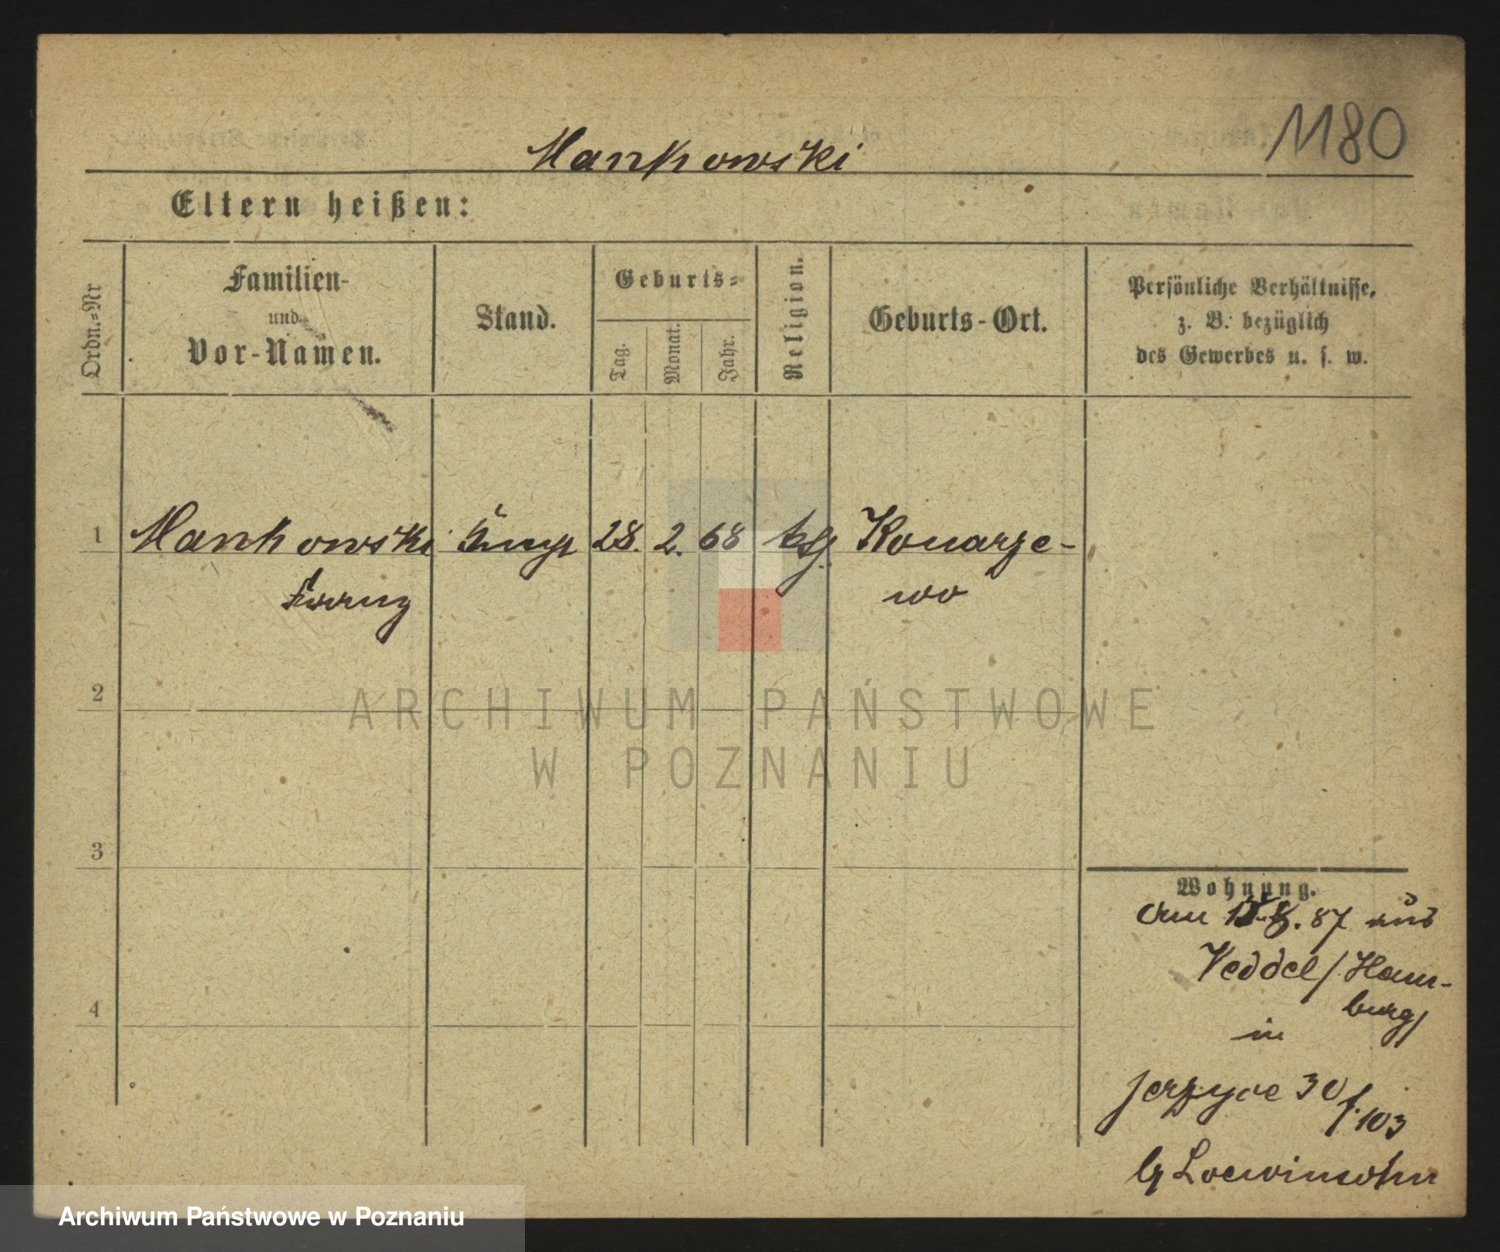 1180
Mankowski
Eltern heißen:
Ordn.-Nr
Familien-
und
Vor-Namen.
Stand.
Geburts-
Tag.
Monat.
Jahr.
Religion.
Geburts-Ort.
Persönliche Verhältnisse,
z. B. bezüglich
des Gewerbes u. s. w.
1 Mankowski 28. 2. 68 ktg. Konarze-
Franz wo
2
3
4
ARCHIWUM PAŃSTWOWE
W POZNANIU
Wohnung.
am 87 aus
Veddel/Ham-
burg/
in
Jerzyce 30 f. 103
Loewinsohn
Archiwum Państwowe w Poznaniu